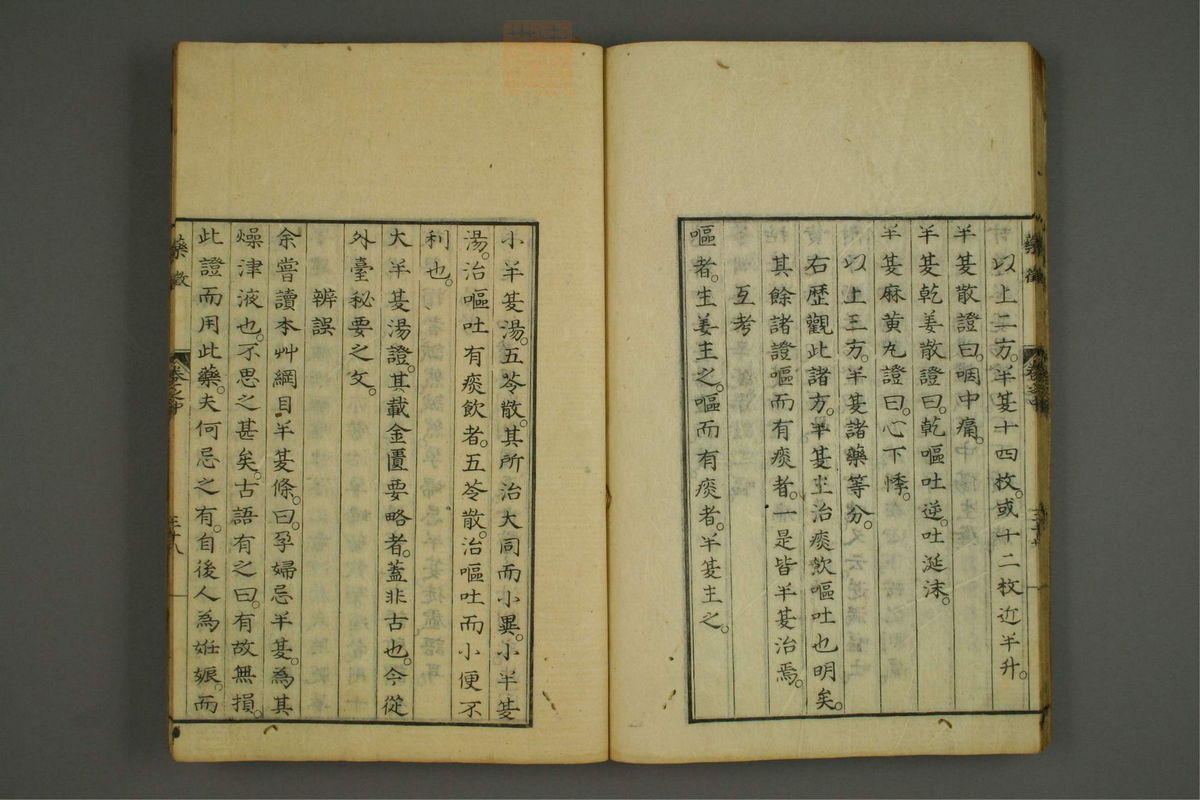 藥徵
卷之中
以上二方。半夏十四枚。或十二枚近半升。
半夏散證曰。咽中痛。
半夏乾姜散證曰。乾嘔吐逆。吐涎沫。
半夏麻黄丸證曰。心下悸。
以上三方。半夏諸藥等分。
右歷觀此諸方。半夏主治痰飲嘔吐也明矣。
其餘諸證嘔而有痰者。一是皆半夏治焉。
互考
嘔者。生姜主之。嘔而有痰者。半夏主之。
小半夏湯。五苓散。其所治大同而小異。小半夏
湯。治嘔吐有痰飲者。五苓散。治嘔吐而小便不
利也。
大半夏湯證。其載金匱要略者。蓋非古也。今從
外臺秘要之文。
辨誤
余嘗讀本艸綱目半夏條。曰。孕婦忌半夏。為其
燥津液也。不思之甚矣。古語有之曰。有故無損。
此證而用此藥。夫何忌之有。自後人為姙娠。而
藥徵
卷之中
三十八